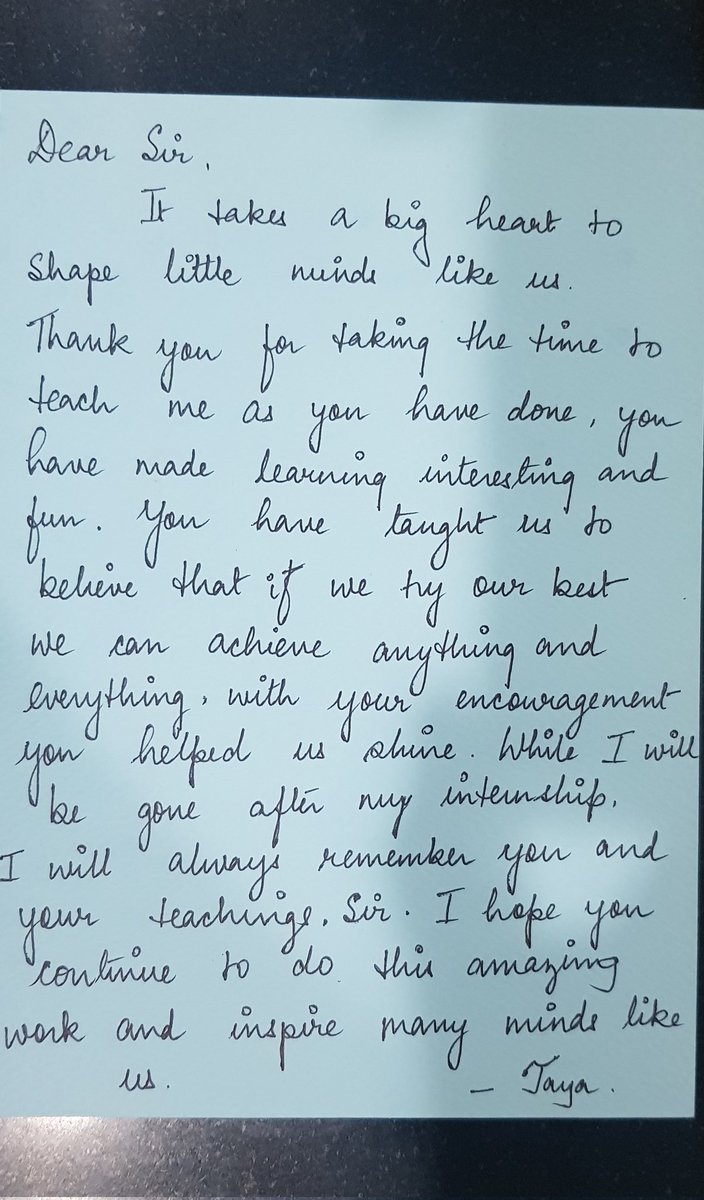 Dear Sir,
It takes a big heart to
shape little minds like us.
Thank you for taking the time to
teach me as you have done, you
have made learning interesting and
fun. You have taught us to
believe that if we try our best
we can achieve anything and
everything, with your encouragement
you helped us shine. While I will
be gone after my internship,
I will always remember you and
your teachings, Sir. I hope you
continue to do this amazing
work and inspire many minds like
us. - Taya.